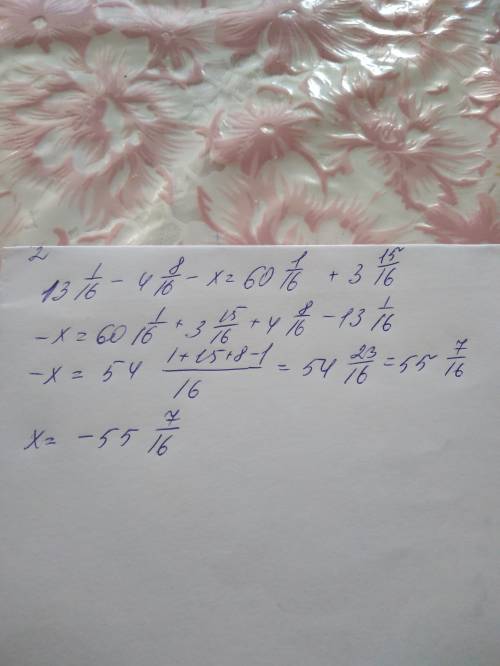 2
13 1/16 - 4 8/16 - x = 60 1/16 + 3 15/16
-x = 60 1/16 + 3 15/16 + 4 8/16 - 13 1/16
-x = 54 (1+15+8-1)/16 = 54 23/16 = 55 7/16
x = -55 7/16